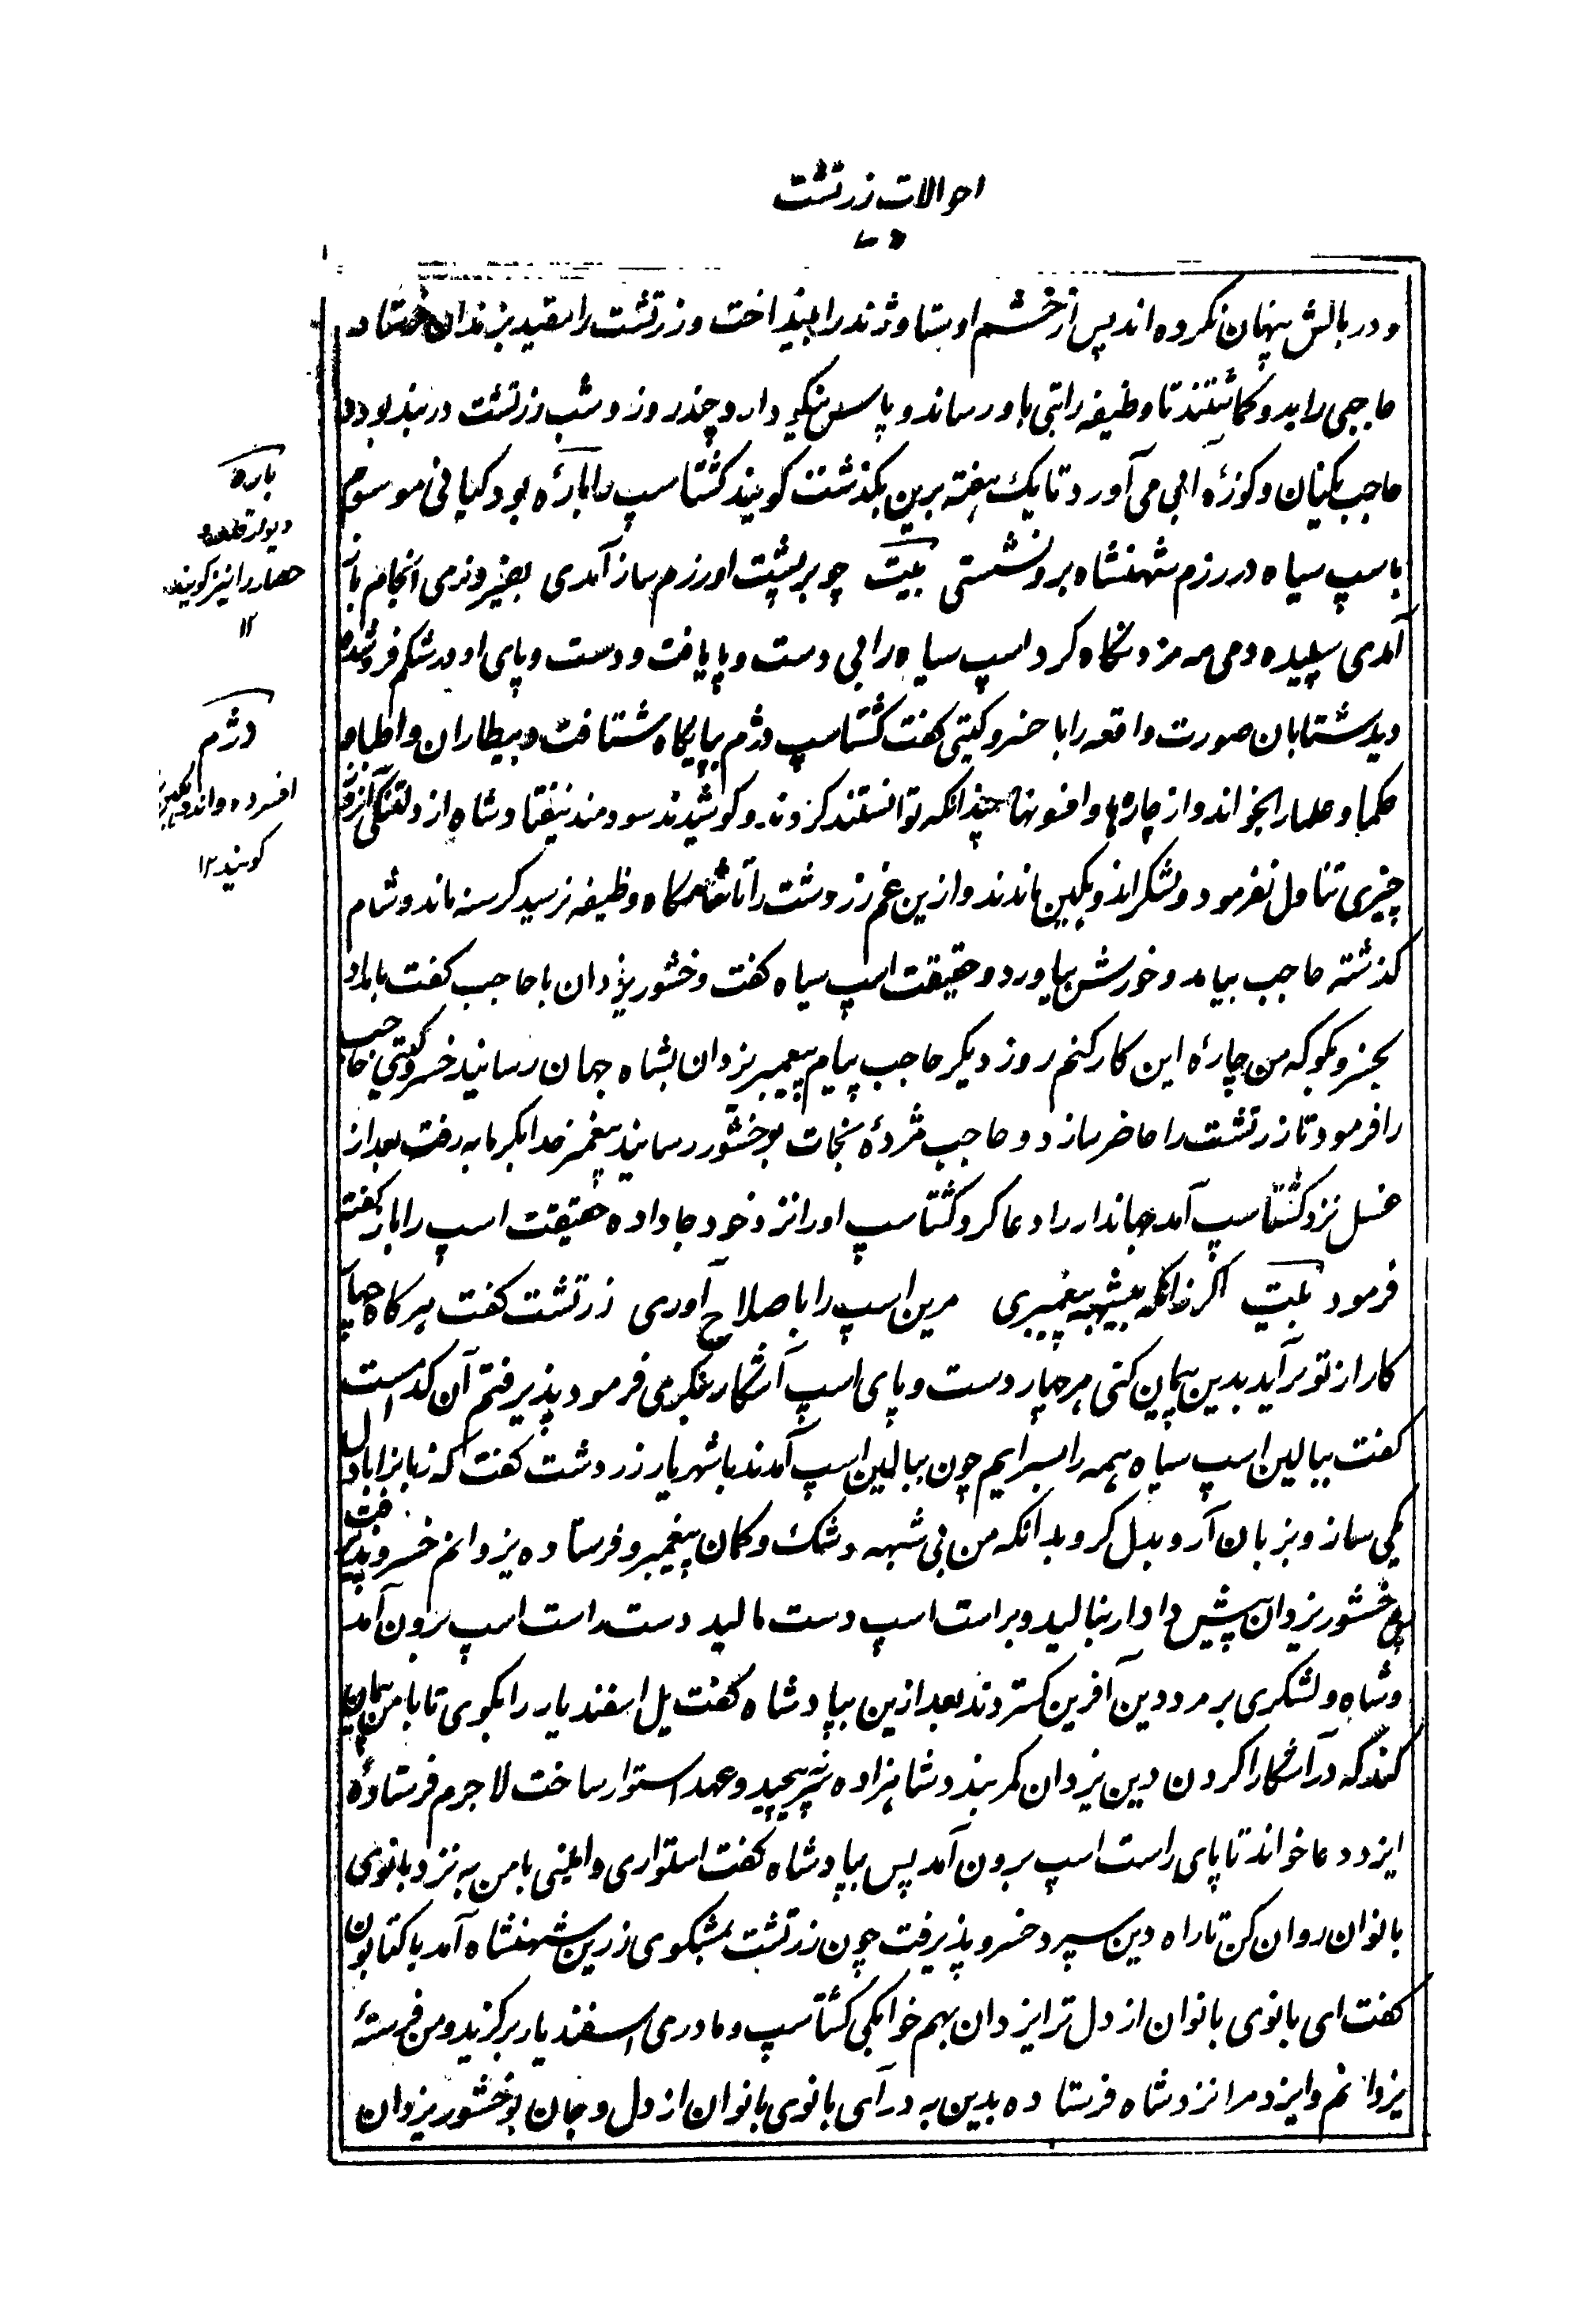 احوالات زرتشت
۹۵
و در بالش پنهان نکرده اند پس از خشم اوستا و ژند را بینداخت و زرتشت را مقید بزندان فرستاد
حاجبی را بدو گماشتند تا وظیفه راتبی باو رساند و پاس نیکو دارد و چند روز و شب زرتشت در بند بود و
حاجب یکنان و کوزهٔ آبی می آورد تا یک هفته برین بگذشت کویند کشتاسپ را بارهٔ بود کیانی موسوم
باسپ سیاه در رزم شهنشاه برو نشستی بیت چو برپشت او رزم ساز آمدی بفیروزی انجام باز
آمدی سپیده دمی مه مزد نگاه کرد اسپ سیاه را بی دست و پا یافت و دست و پای او در شکم فرو شده
دید شتابان صورت واقعه را با خسرو کیتی کفت کشتاسپ دژم بپایگاه شتافت و بیطاران و اطبا و
حکما و علما را بخواند و از چاره ها و افسونها چندانکه توانستند کردند و کوشیدند سودمند نیفتاد شاه از دلتنگی آنروز
چیزی تناول نفرمود و لشکر اندوهکین ماندند و ازین غم زردشت را تا شامگاه وظیفه نرسید کرسنه ماند و شام
کذشته حاجب بیامد و خورش بیاورد و حقیقت اسپ سیاه کفت وخشور یزدان با حاجب کفت بامداد
بخسرو بکو که من چارهٔ این کار کنم روز دیکر حاجب پیام پیغمبر یزدان بشاه جهان رسانید خسرو کیتی حاجب
را فرمود تا زرتشت را حاضر سازد و حاجب مژدهٔ نجات بوخشور رسانید پیغمبر خدا بگرمابه رفت بعد از
غسل نزد کشتاسپ آمد جهاندار را دعا کرد کشتاسپ او را نزد خود جا داده حقیقت اسپ را باز کفته
فرمود بیت اگر زانکه بیشبهه پیغمبری مرین اسپ را باصلاح آوری زرتشت کفت هرکاه چهار
کار از تو برآید بدین پیمان کنی هر چهار دست و پای اسپ آشکار بنگری فرمود پذیرفتم آن کدامست
کفت ببالین اسپ سیاه همه را بسرایم چون ببالین اسپ آمدند با شهریار زردشت کفت که زبانرا با دل
یکی ساز و بزبان آر و بدل کرو بدانکه من بی شبهه و شک و کمان پیغمبر و فرستاده یزدانم خسرو پذیرفت
وخشور یزدان پیش دادار بنالید و براست اسپ دست مالید دست راست اسپ برون آمد
و شاه و لشکری بر مرد دین آفرین کستردند بعد ازین بپادشاه کفت یل اسفندیار را بکوی تا با من پیمان
کند که در آشکارا کردن دین یزدان کمر بندد شاهزاده نه پیچید و عهد استوار ساخت لاجرم فرستادهٔ
ایزد دعا خواند تا پای راست اسپ برون آمد پس بپادشاه کفت استواری و امینی با من به نزد بانوی
بانوان روان کن تا راه دین سپرد خسرو پذیرفت چون زرتشت بمشکوی زرین شهنشاه آمد با کتابون
کفت ای بانوی بانوان از دل ترا یزدان بهم خوابکی کشتاسپ و مادری اسفندیار برکزید و من فرستهٔ
یزدانم و ایزد مرا نزد شاه فرستاده بدین به در آی بانوی بانوان از دل و جان بوخشور یزدان
باره
دیوار قلعه و
حصار را نیز کویند
۱۲
دژم
افسرده و اندوهکین را
کویند ۱۲